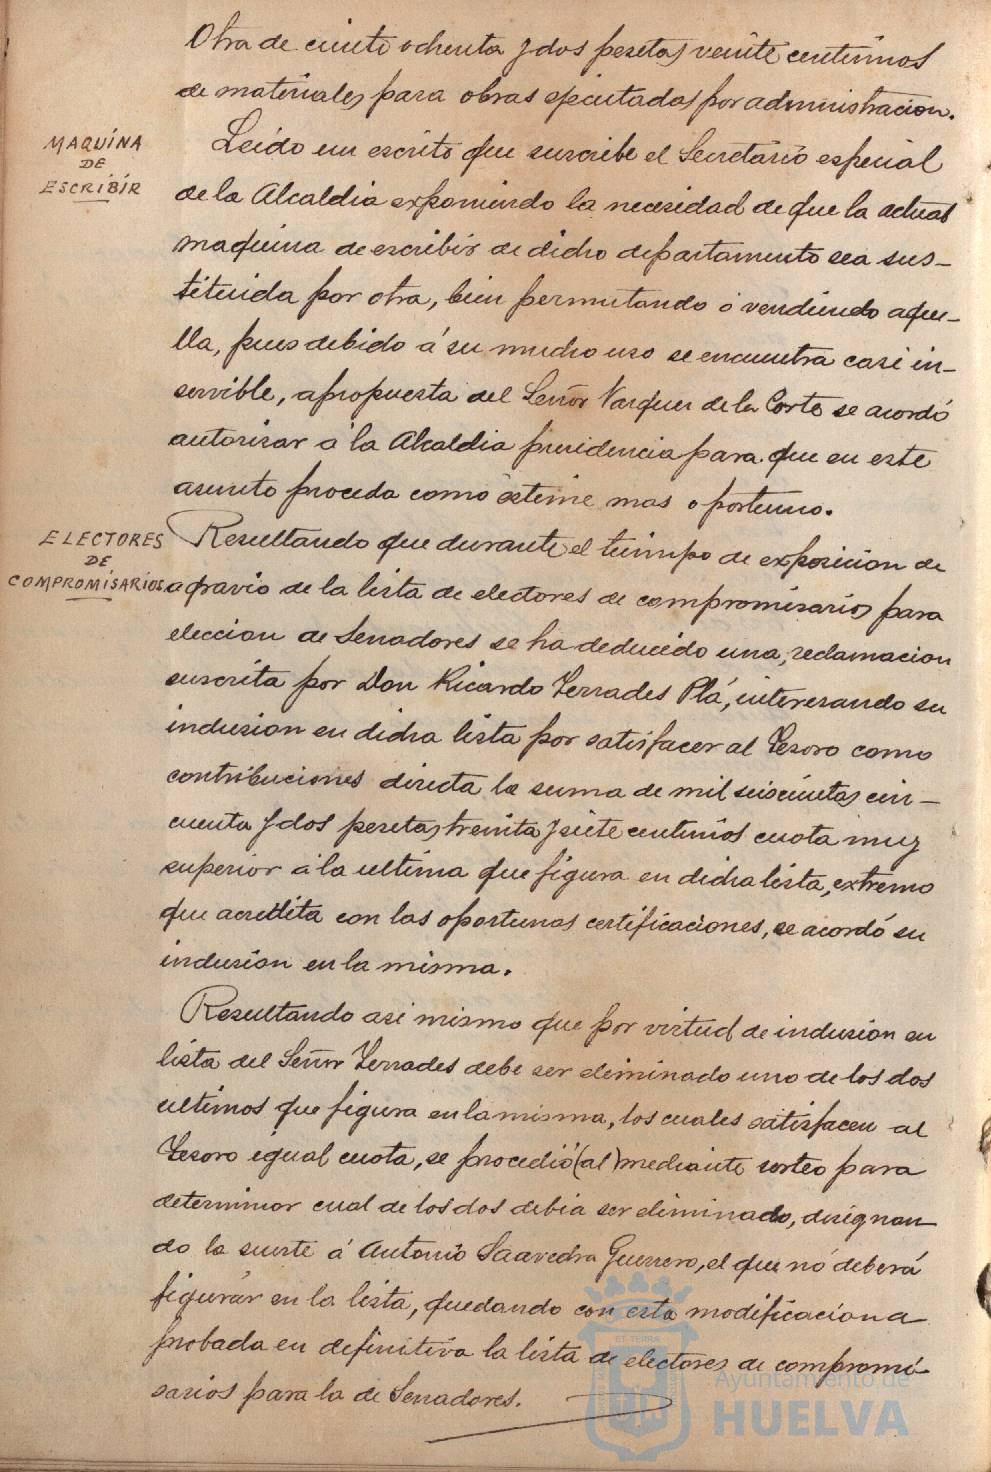 Otra de ciento ochenta y dos pesetas veinte centimos
de materiales para obras ejecutadas por administracion.
MAQUINA
DE
ESCRIBIR
Leido un escrito que suscribe el Secretario especial
de la Alcaldia exponiendo la necesidad de que la actual
maquina de escribir de dicho departamento sea sus-
tituida por otra, bien permutando o vendiendo aque-
lla, pues debido á su mucho uso se encuentra casi in-
servible, a propuesta del Señor Vazquez de la Corte se acordó
autorizar á la Alcaldia presidencia para que en este
asunto proceda como estime mas oportuno.
ELECTORES
DE
COMPROMISARIOS
Resultando que durante el tiempo de exposicion de
agravio de la lista de electores de compromisarios para
eleccion de Senadores se ha deducido una, reclamacion
suscrita por Don Ricardo Terrades Plá, interesando su
inclusion en dicha lista por satisfacer al Tesoro como
contribuciones directa la suma de mil seiscientas cin-
cuenta y dos pesetas treinta y siete centimos cuota muy
superior á la ultima que figura en dicha lista, extremo
que acredita con las oportunas certificaciones, se acordó su
inclusion en la misma.
Resultando asi mismo que por virtud de inclusion en
lista del Señor Terrades debe ser eliminado uno de los dos
ultimos que figura en la misma, los cuales satisfacen al
Tesoro igual cuota, se procedió (al) mediante sorteo para
determinar cual de los dos debia ser eliminado, designan
do la suerte á Antonio Saavedra Guerrero, el que nó deberá
figurar en la lista, quedando con esta modificacion a
probada en definitiva la lista de electores de compromi-
sarios para la de Senadores.
ET TERRA
Ayuntamiento de
HUELVA